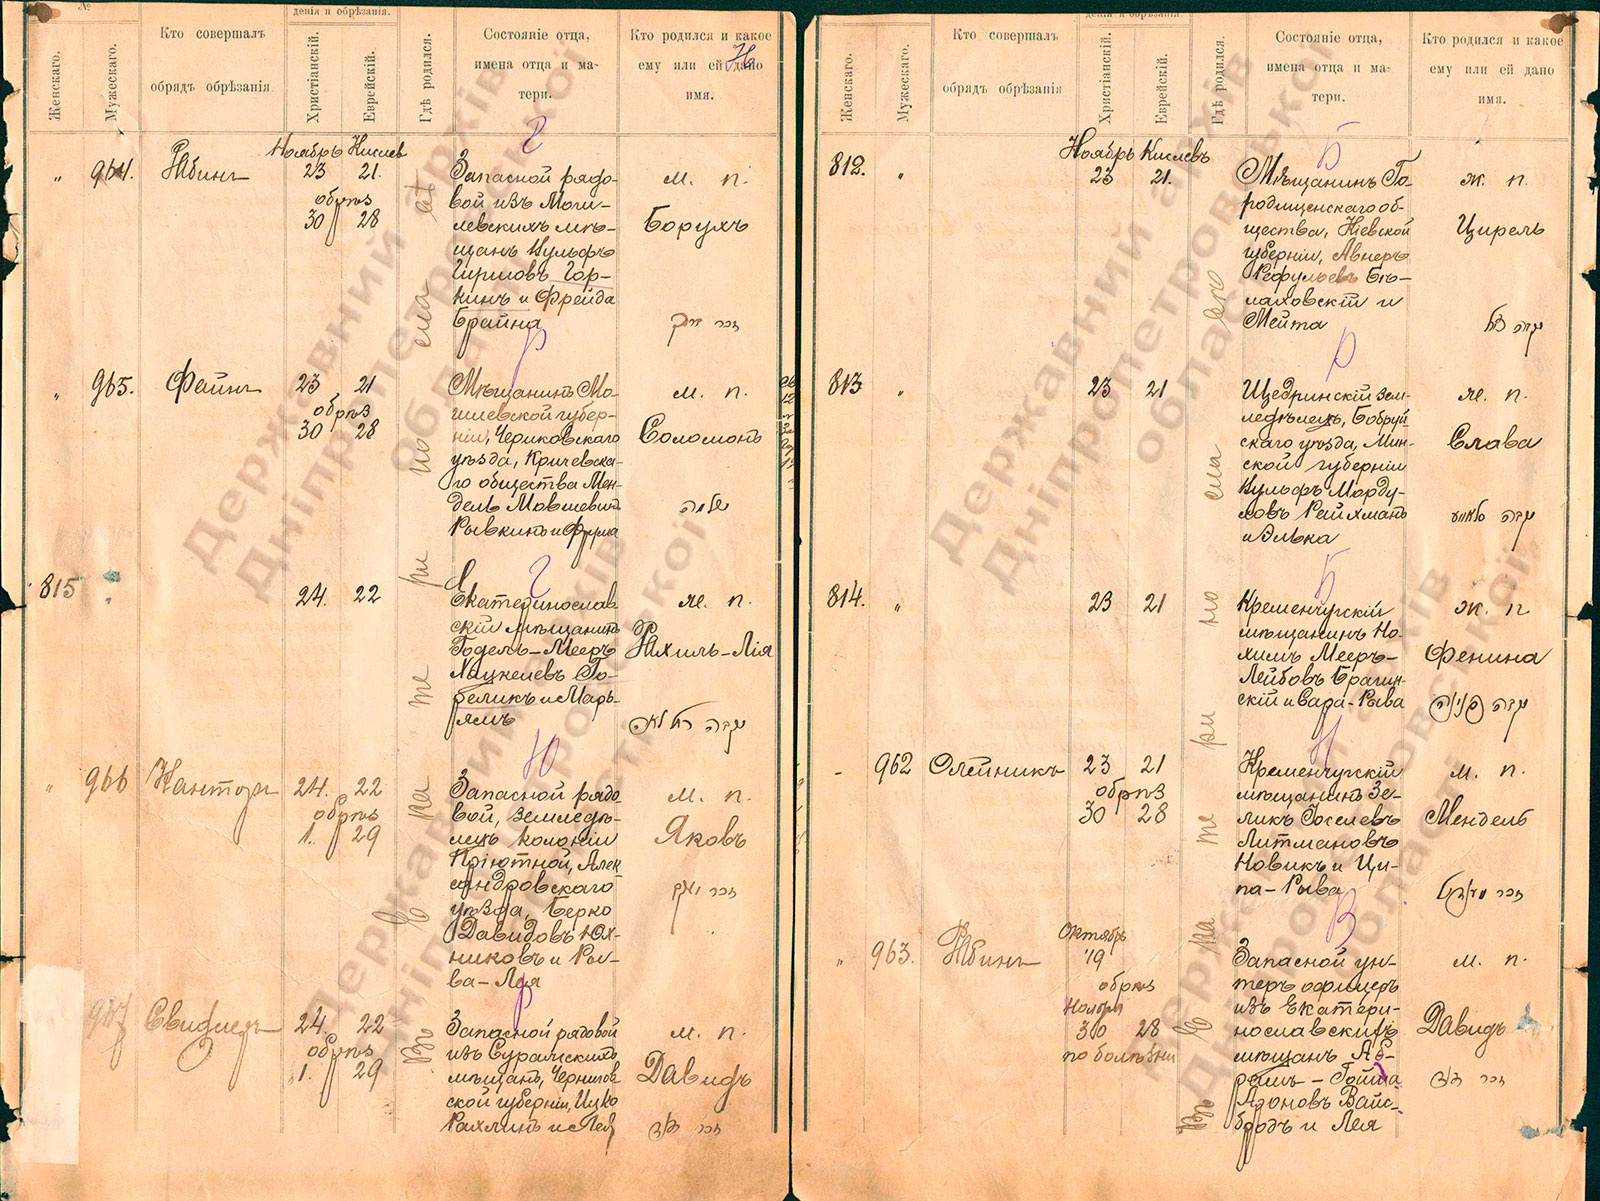 №
дения и обрѣзания.
Женскаго.
Мужескаго.
Кто совершалъ
обрядъ обрѣзанія
Христіанскій.
Еврейскій.
Гдѣ родился.
Состояніе отца,
имена отца и ма-
тери.
Кто родился и какое
ему или ей дано
имя.
Ноябрь Кислев
„ 964.
23 21.
обрѣз
30 28
Г
Запасной рядо-
вой изъ Моги-
левскихъ мѣ-
щанъ Вульфъ
Гиршовъ Гор-
кинъ и Фрейда
Брайна
м. п.
Борухъ
„ 965.
Фейнъ
23 21
обрѣз
30 28
Р
Мѣщанинъ Мо-
гилевской губер-
ніи, Чериковскаго
уѣзда, Кричевска-
го общества Мен-
дель Мовшевичъ
Рывкинъ и Фрума
м. п.
Соломонъ
שלמה
815 „
24. 22
Г
Екатеринослав
скій мѣщанинъ
Годель-Мееръ
Го-
беликъ и Марь-
ямъ
ж. п.
Рахиль-Лія
„ 966
Канторъ
24. 22
обрѣз
1. 29
Ю
Запасной рядо-
вой, земледѣ-
лецъ колоніи
Пріютной, Алек
сандровскаго
уѣзда, Берко
Давидовъ Юх-
никовъ и Ры-
ва-Лея
м. п.
Яковъ
24. 22
обрѣз
1. 29
Р
Запасной рядовой
изъ Суражскихъ
мѣщанъ, Чернигов
ской губерніи, Ицко
Рахлинъ и Лея
м. п.
Давидъ
Въ Екатеринославѣ
дения и обрѣзания.
Женскаго.
Мужескаго.
Кто совершалъ
обрядъ обрѣзанія
Христіанскій.
Еврейскій.
Гдѣ родился.
Состояніе отца,
имена отца и ма-
тери.
Кто родился и какое
ему или ей дано
имя.
Ноябрь Кислевъ
812. „
23 21.
Б
Мѣщанинъ Го-
родищенскаго об-
щества, Кіевской
губерніи, Авнеръ
Бѣ-
лаховскій и
Мейта
ж. п.
Цирель
813 „
23 21
Р
Щедринскій зем-
ледѣлецъ, Бобруй
скаго уѣзда, Мин-
ской губерніи
Вульфъ Морду-
ховъ Райхманъ
и Элька
ж. п.
Слава
814. „
23 21
Б
Кременчугскій
мѣщанинъ Но-
химъ Мееръ-
Лейбовъ Брагин-
скій и Сара-Рыва
ж. п
Фенина
962 Олейникъ
23 21
обрѣз
30 28
Н
Кременчугскій
мѣщанинъ Зе-
ликъ Іоселевъ
Литмановъ
Новикъ и Ци-
па-Рыва
м. п.
Мендель
„ 963.
Октябрь
19
обрѣз
Ноября
30 28
по болѣзни
В
Запасной ун-
теръ офицеръ
изъ Екатери-
нославскихъ
мѣщанъ Аб-
рамъ-
Ароновъ Вайс-
бродъ и Лея
м. п.
Давидъ
Въ Екатеринославѣ
Державний архів
Дніпропетровської
області